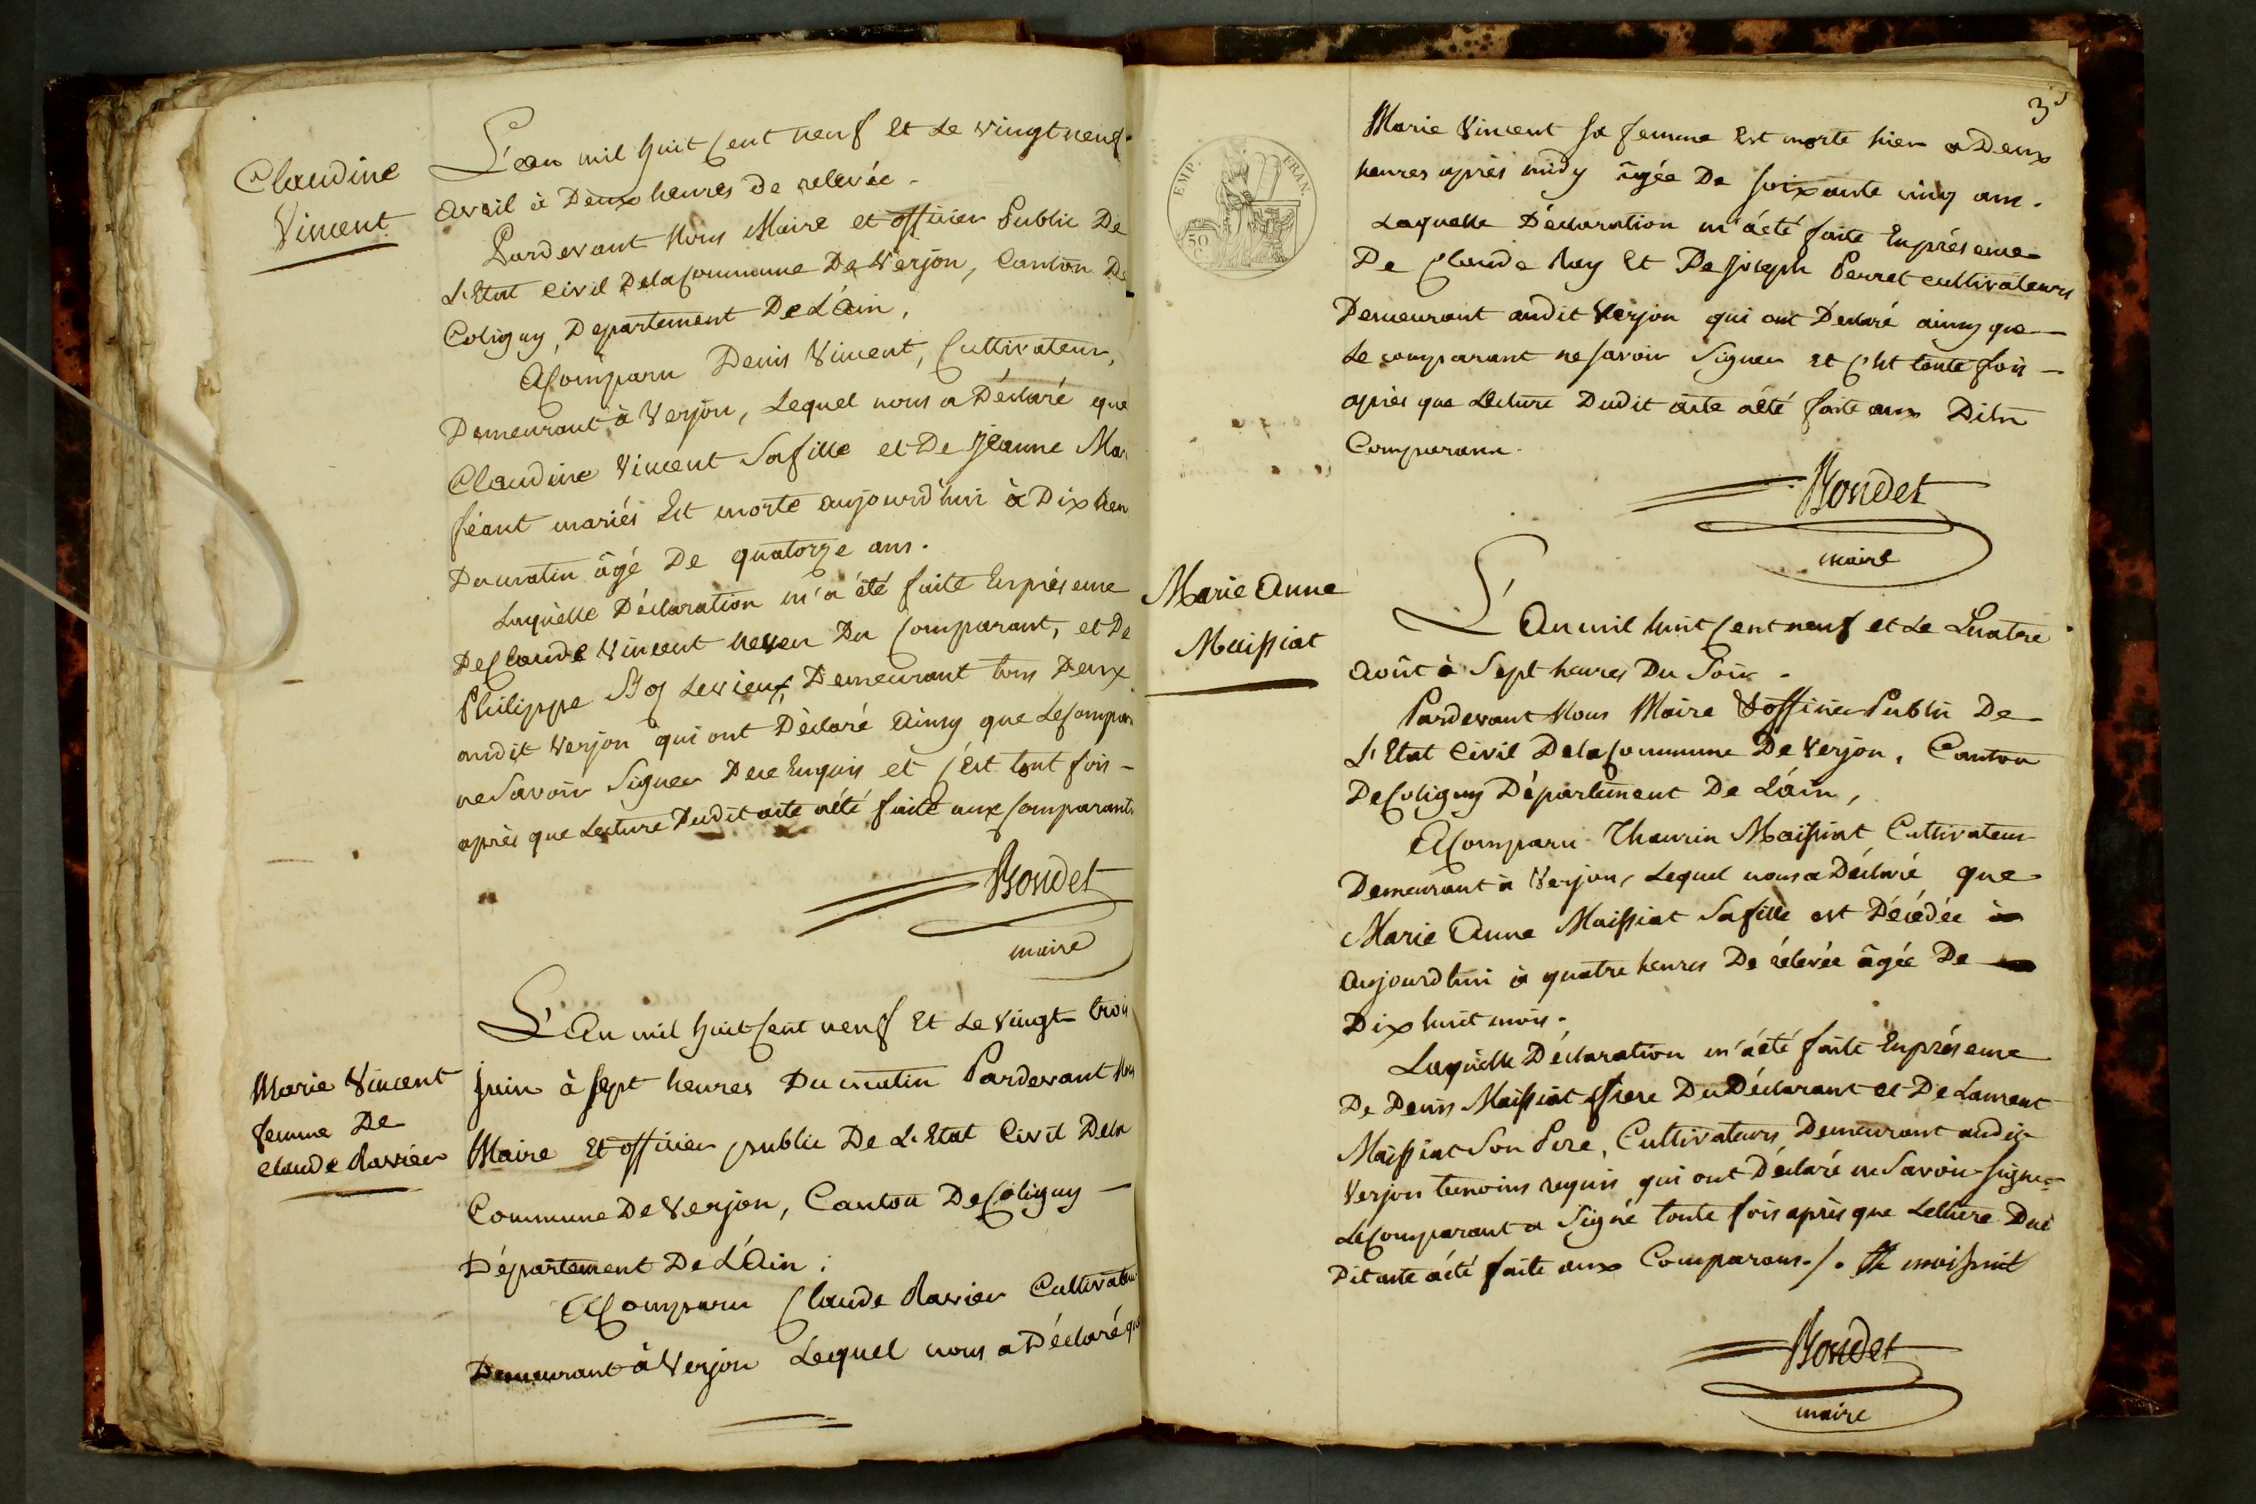 Claudine
Vincent
L'an mil huit Cent neuf Et Le vingt neuf
avril à Deux heures de relevée.
Pardevant Nous Maire et officier Public De
L'Etat Civil Dela Commune De Verjon, Canton De
Coligny, Departement De L'ain,
A Comparu Denis Vincent, Cultivateur,
Demeurant à Verjon, Lequel nous a Déclaré que
Claudine Vincent Sa fille et De Jeanne Mar
féant mariés Est morte aujourd'hui à Dix heu
Du matin âgé De quatorze ans.
Laquelle Déclaration m'a été faite En présence
De Claude Vincent neveu Du Comparant, et De
Philippe Le vieux, Demeurant tous Deux
audit Verjon qui ont Déclaré Ainsy que Le Compar
ne Savoir Signer De ce Enquis et C'Est tout fois -
après que Lecture Dudit acte a été faite aux Comparants
Bondet
maire
Marie Vincent
femme De
Claude Ravier
L'An mil huit Cent neuf Et Le Vingt trois
Juin à Sept heures Du matin Pardevant Nous
Maire Et officier public De L'Etat Civil Dela
Commune De Verjon, Canton De Coligny -
Département De L'Ain;
A Comparu Claude Ravier Cultivateur
Demeurant à Verjon Lequel nous a Déclaré que
3
EMP. FRAN.
50 C
Marie Vincent Sa femme Est morte hier a Deux
heures après midy âgée De Soixante cinq ans.
Laquelle Déclaration m'a été faite En présence
De Claude Ray Et De Joseph Perret cultivateurs
Demeurant audit Verjon qui ont Declaré ainsy que -
Le comparant ne Savoir Signer et C'Est toute fois -
après que Lecture Dudit acte a été faite aux Dits
Comparans.
Bondet
maire
Marie Anne
Maissiat
L'An mil huit Cent neuf et Le Quatre
Août à Sept heures Du Soir.
Pardevant Nous Maire & officier Public De
L'Etat Civil Dela Commune De Verjon, Canton
De Coligny Département De L'ain,
A Comparu Thaurin Maissiat Cultivateur
Demeurant à Verjon, Lequel nous a Déclaré que
Marie Anne Maissiat Sa fille est Décédée
Aujourd'hui à quatre heures De rélevée âgée De
Dix huit mois.
Laquelle Déclaration m'a été faite En présence
De Denis Maissiat frere Du Déclarant et De Laurent
Maissiat Son Pere, Cultivateurs Demeurant audit
Verjon temoins requis qui ont Déclaré ne Savoir Signer
Le Comparant a Signé toute fois après que Lecture Du
Dit acte a été faite aux Comparans./. Th maissiat
Bondet
maire